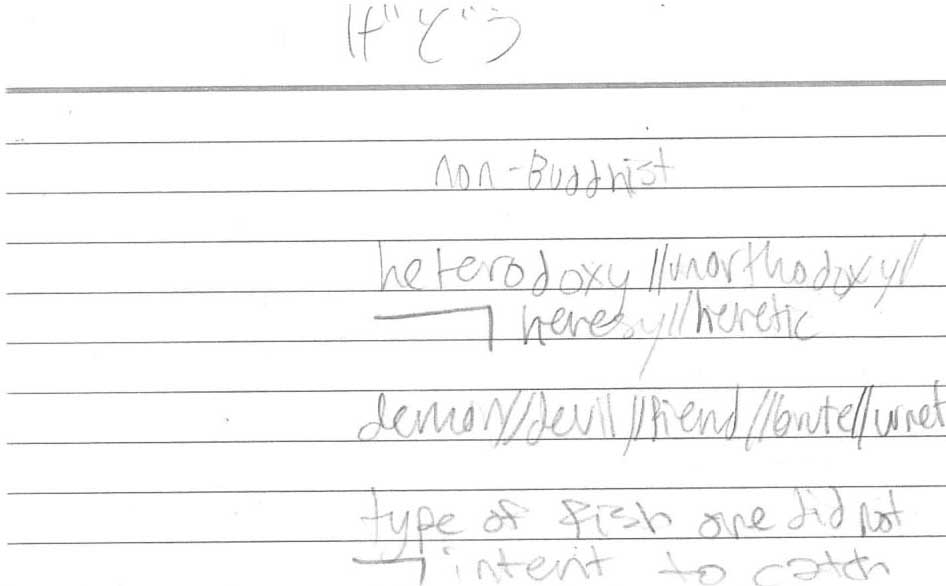 げどう
non-Buddhist
heterodoxy//unorthodoxy//
heresy//heretic
demon//devil//fiend//brute//wret
type of fish one did not
intent to catch